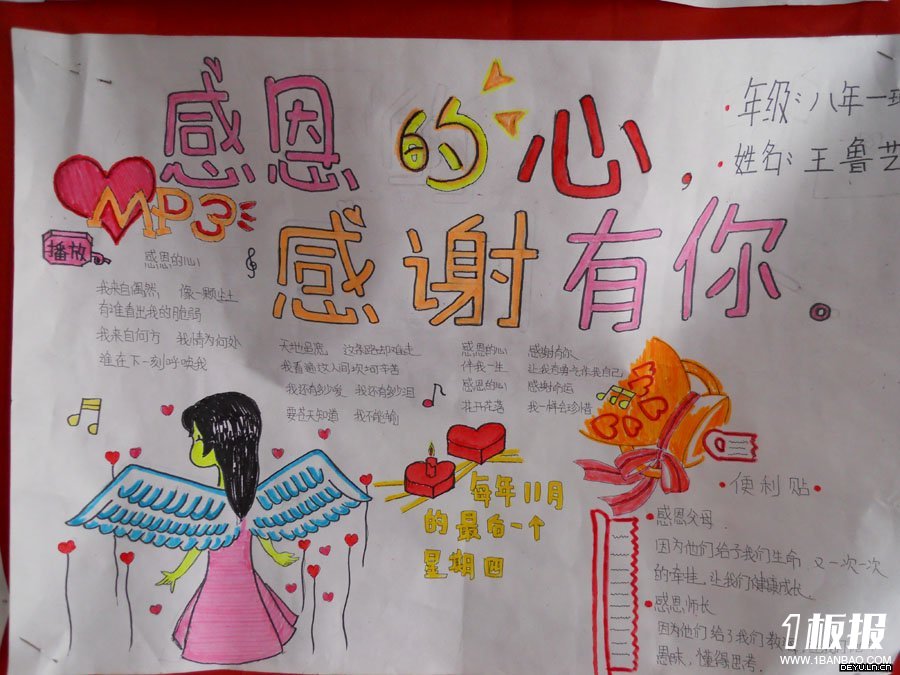 感恩的心，
感谢有你。
年级：八年一班
姓名：王鲁艺
MP3
播放
感恩的心
我来自偶然，像一颗尘土
有谁看出我的脆弱
我来自何方 我情为何处
谁在下一刻呼唤我
天地虽宽，这条路却难走
我看遍这人间坎坷辛苦
我还有多少爱 我还有多少泪
要苍天知道 我不能输
感恩的心 感谢有你
伴我一生 让我有勇气作我自己
感恩的心 感谢命运
花开花落 我一样会珍惜
每年11月
的最后一个
星期四
便利贴
感恩父母
因为他们给了我们生命，又一次一次
的牵挂，让我们健康成长。
感恩师长
因为他们给了我们教
愚昧，懂得思考。
1板报
WWW.1BANBAO.COM
DEYU.LN.CN